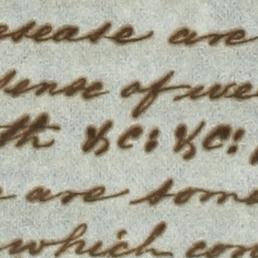 disease are
sense of we
th &c: &c:
are some
which con